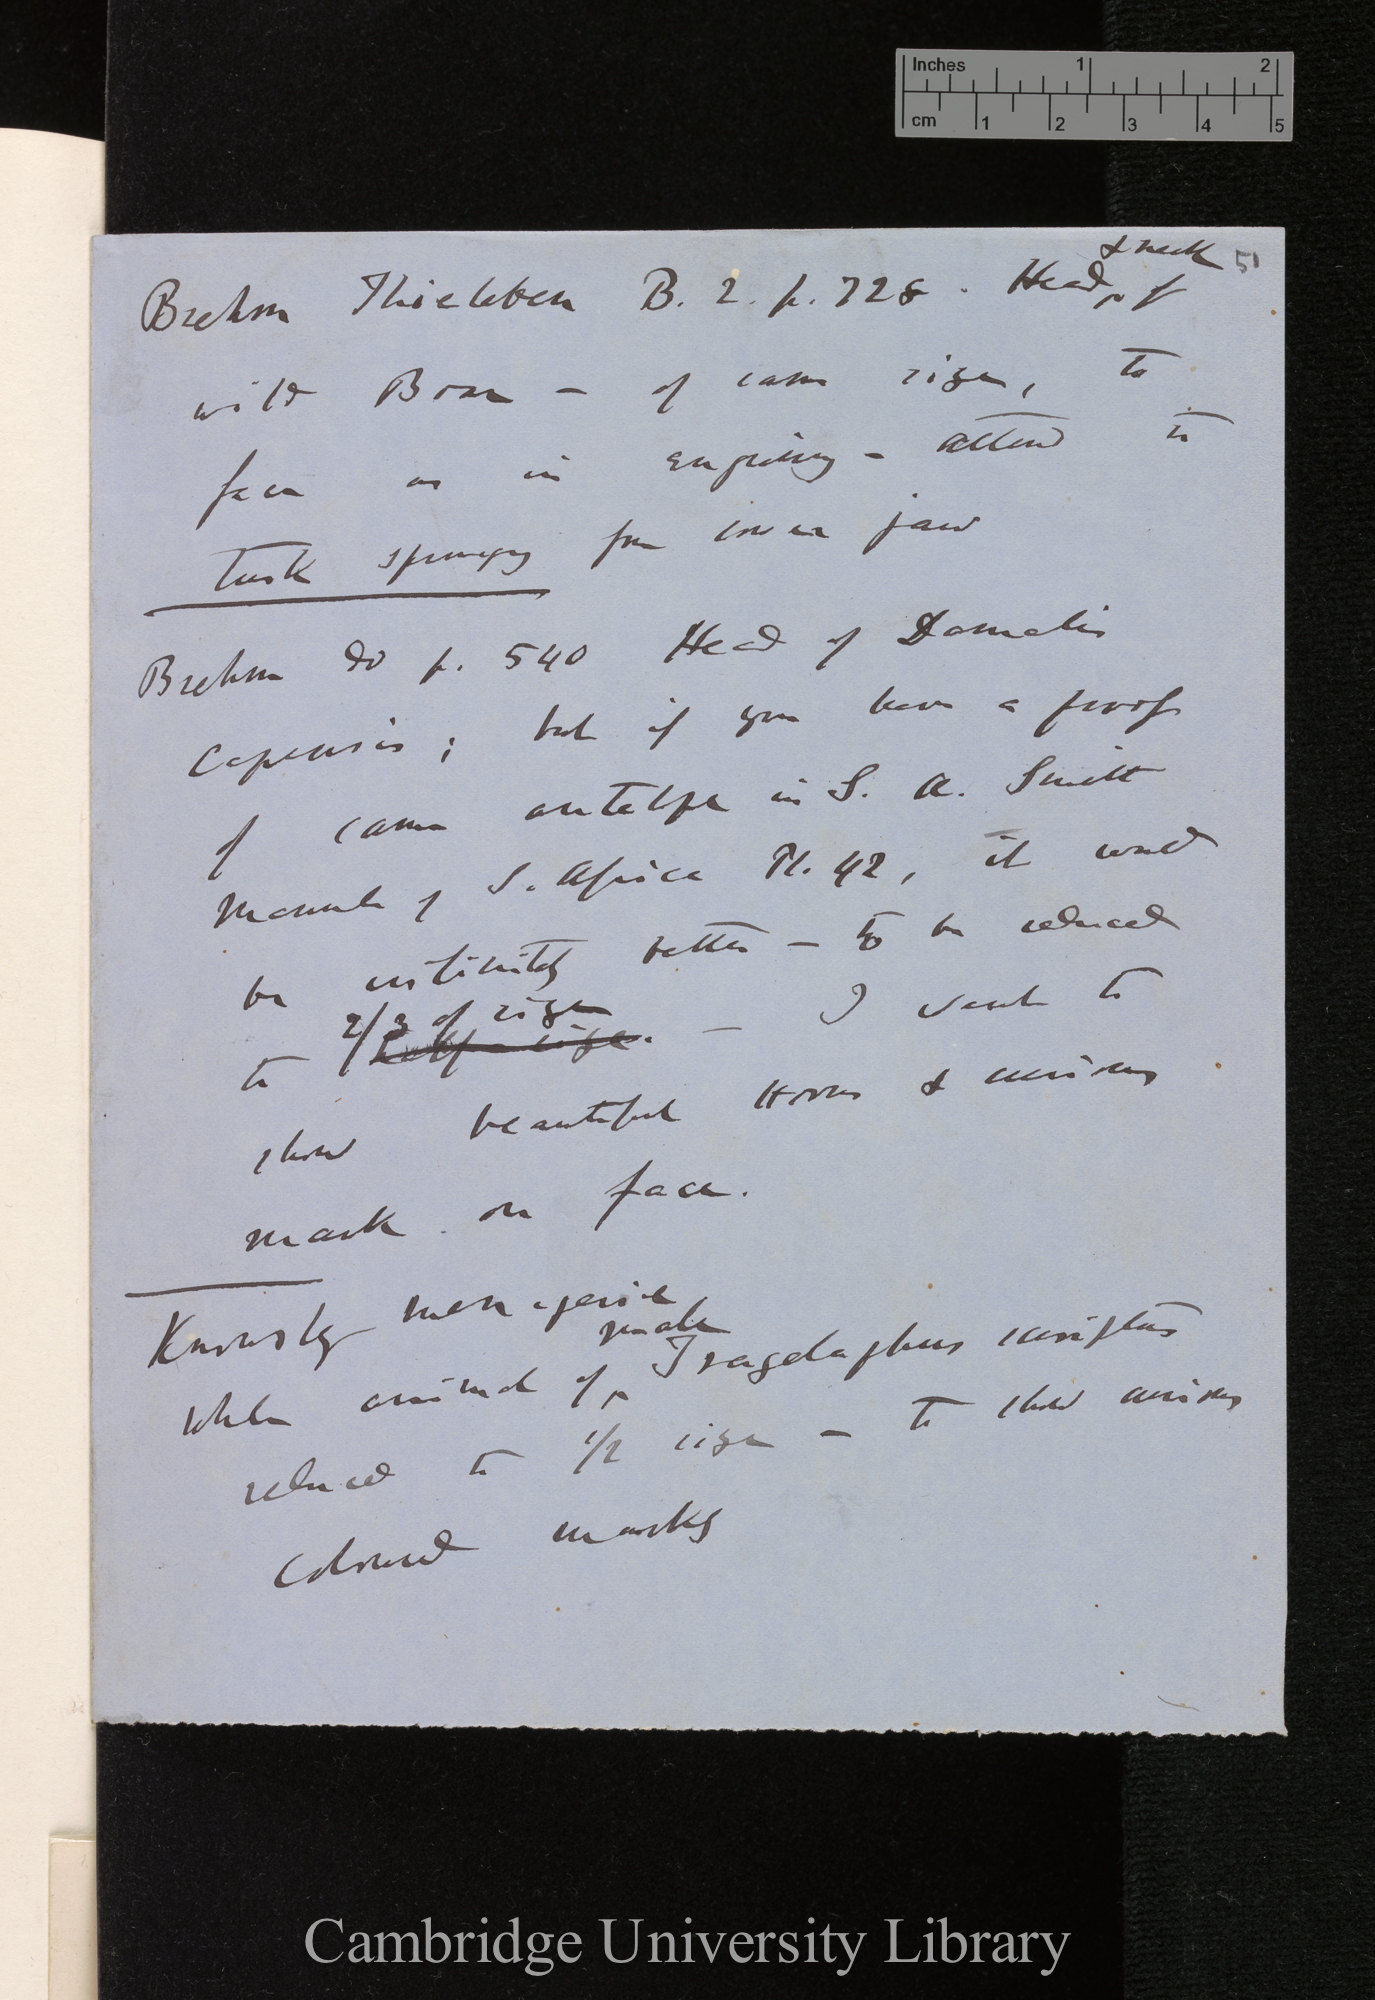 Inches 1 2
cm 1 2 3 4 5
51
& neck
Brehm Thierleben B. 2. p. 728. Head of
wild Boar – of same size, to
face as in engraving – attend to
tusk springing from lower jaw
Brehm do p. 540 Head of Damalis
Capensis; but if you have a proof
of same antelope in S. A. Smith
Mammals of S. Africa Pl. 42, it would
be infinitely better – to be reduced
2/3 of size
to half size. – I want to
show beautiful Horns & curious
mark on face.
Knowsley menagerie
male
whole animal of Tragelaphus scriptus
reduced to 1/2 size – to show curious
coloured marks
Cambridge University Library